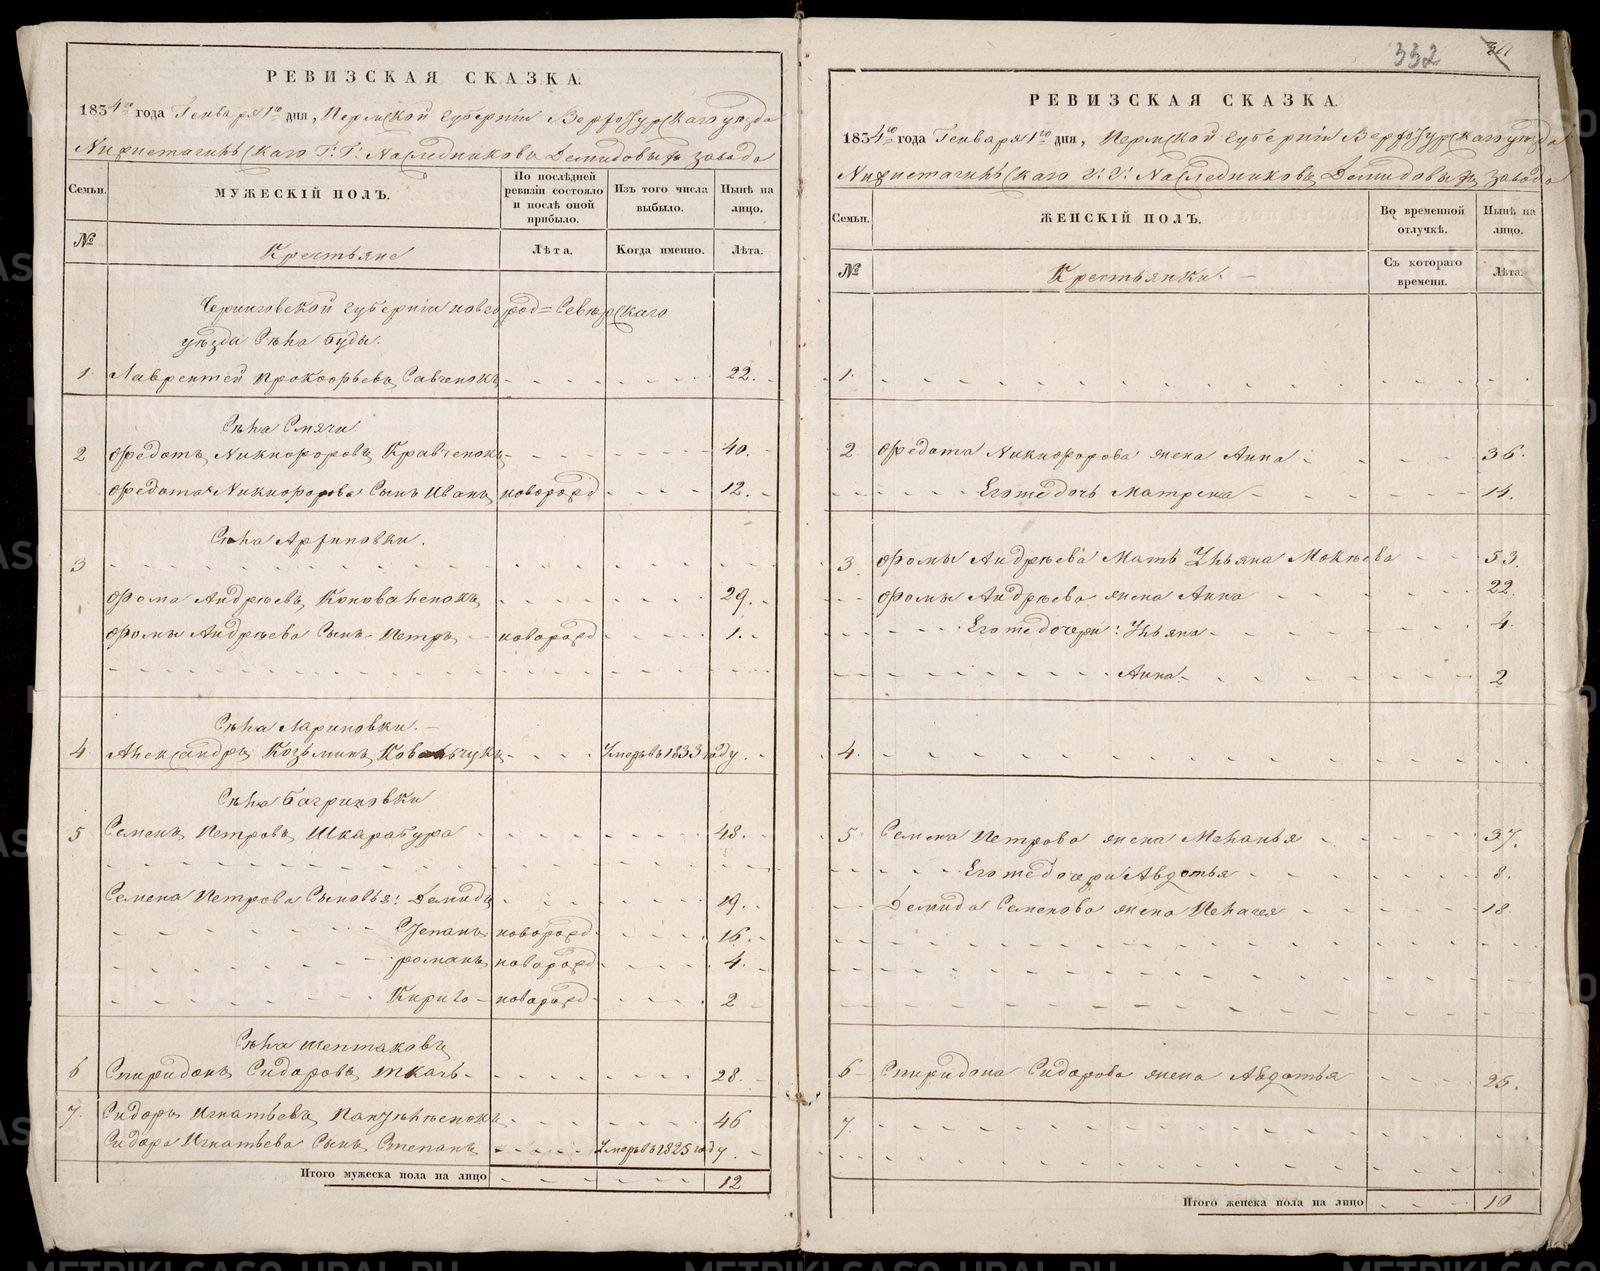 332
РЕВИЗСКАЯ СКАЗКА.
1834го года Генваря 1го дня, Пермской Губерніи Верхотурскаго уѣзда
Нижнетагильскаго Г: Г: Наследниковъ Демидовыхъ завода
Семьи.
МУЖЕСКІЙ ПОЛЪ.
По послѣдней ревизіи состояло и послѣ оной прибыло.
Изъ того числа выбыло.
Нынѣ на лицо.
№
Крестьяне
Лѣта.
Когда именно.
Лѣта.
Черниговской Губерніи новгород=Севѣрскаго
уѣзда Сѣла буды.
1 Лаврентей Прокофьевъ Савченокъ 22.
Сѣла Смячи
2 Федотъ Никифоровъ Кравченокъ 40.
Федота Никифорова Сынъ Иванъ новорожд 12.
Сѣла Архиповки.
3
Фома Андрѣевъ Коноваленокъ 29.
Фомы Андрѣева Сынъ Петръ новорожд 1.
Сѣла Лариновки.
4 Александръ Козьминъ Ковальчукъ Умеръ въ 1833 году.
Сѣла Багриновки
5 Семенъ Петровъ Шкарабура 48.
Семена Петрова Сыновья: Демидъ 19.
Степанъ новорожд 16.
романъ новорожд 4.
Кирило новорожд 2
Сѣла Шептаковъ
6 Спиридонъ Сидоровъ Ткачь 28.
7. Сидоръ Игнатьевъ 46
Сидора Игнатьева Сынъ Степанъ Умеръ въ 1825 году.
Итого мужеска пола на лицо 12
РЕВИЗСКАЯ СКАЗКА.
1834го года Генваря 1го дня, Пермской Губерніи Верхотурскаго уѣзда
Нижнетагильскаго Г: Г: Наследниковъ Демидовыхъ завода
Семьи.
ЖЕНСКІЙ ПОЛЪ.
Во временной отлучкѣ.
Нынѣ на лицо.
№
Крестьянки.
Съ котораго времени.
Лѣта.
1.
2 Федота Никифорова жена Анна 36.
Его же дочь Матрена 14.
3. Фомы Андрѣева Мать Ульяна Мокѣева 53.
Фомы Андрѣева жена Анна 22.
Его же дочери: Ульяна 4.
Анна 2
4.
5. Семена Петрова жена Меланья 37.
Его же дочери Авдотья 8.
Демида Семенова жена Пелагея 18.
6 Спиридона Сидорова жена Авдотья 25.
7.
Итого женска пола на лицо 10
METRIKI.GASO-URAL.RU